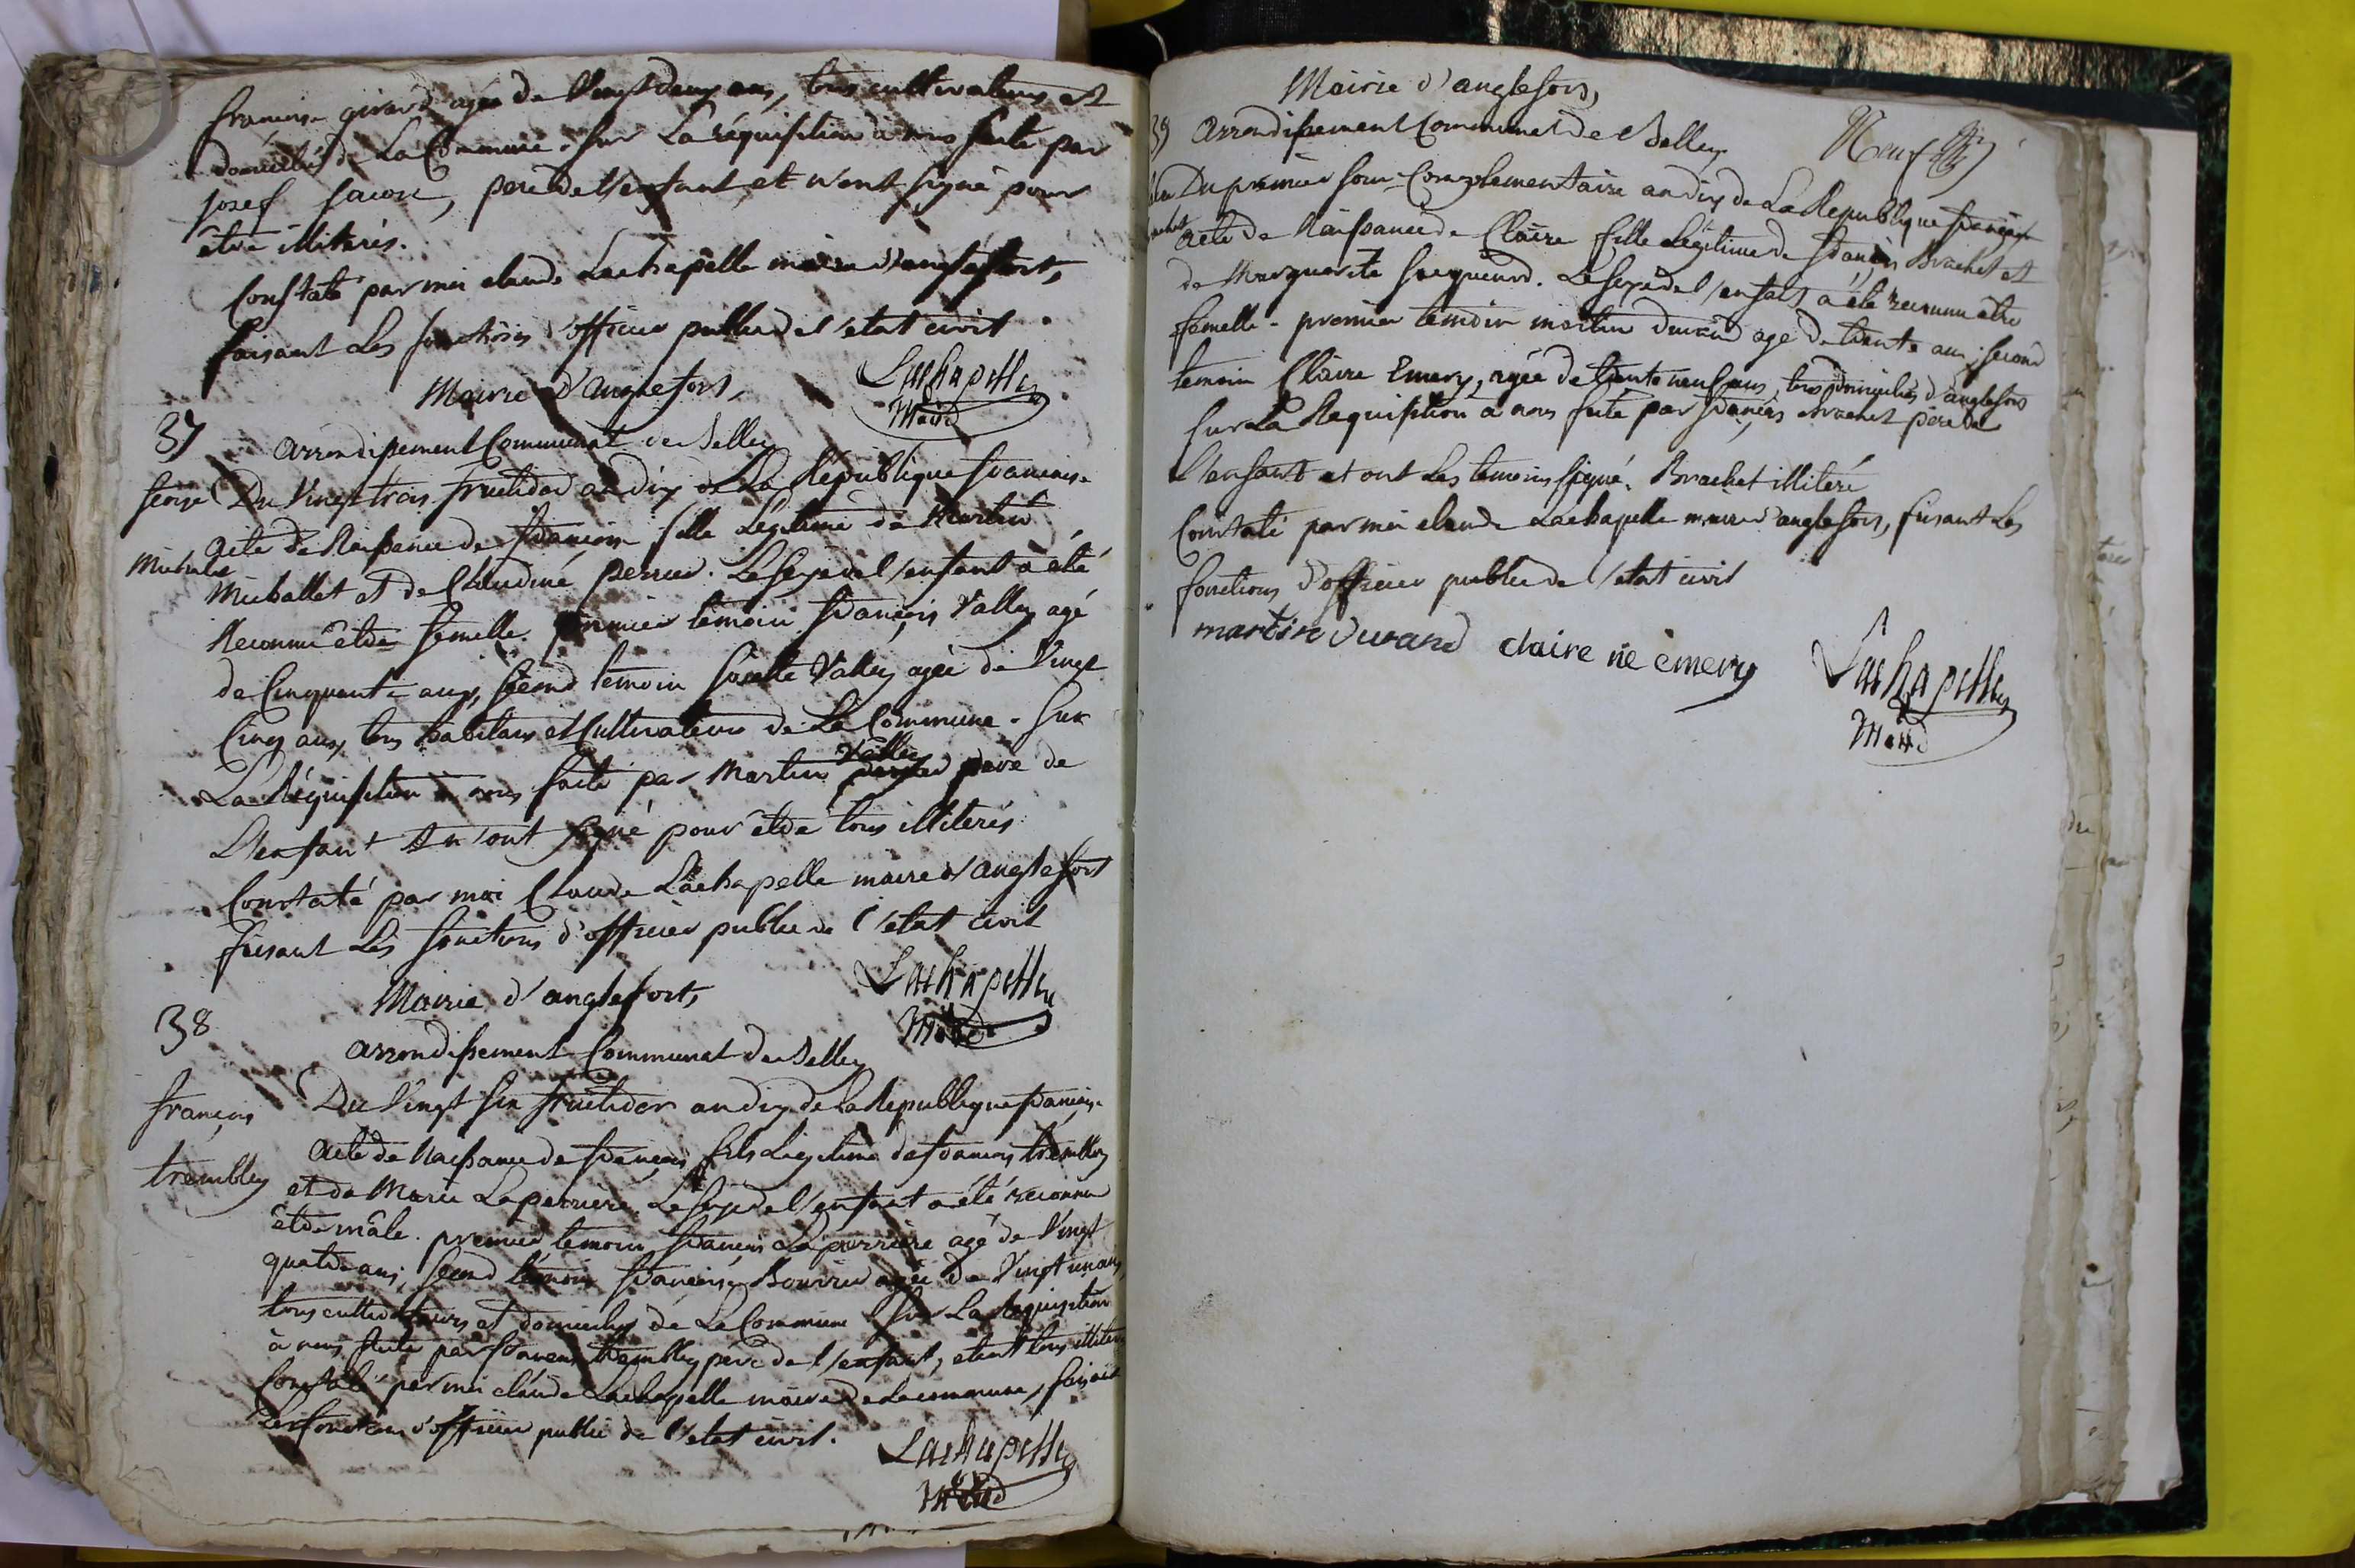 françoise girard agée de Vingt deux ans, tous cultivateurs et
domiciliés de La Commune. Sur La réquisition à nous faite par
josef jacon, père de l'enfant, et n'ont signé pour
être illiterés.
Constaté par moi claude Lachapelle maire d'anglefort,
faisant Les fonctions d'officier public de l'etat civil
Lachapelle
Maire
Mairie d'anglefort,
37
arrondissement Communal de Belley
Du Vingt trois fructidor an dix de La République françoise
acte de Naissance de françoise fille Légitime de Martin
Michallet
Michallet et de Claudine perrier. Le sexe de l'enfant a été
Reconnu être femelle. premier temoin françois Vallez agé
de Cinquante ans, second temoin josette Vallez agée de Vingt
Cinq ans, tous habitans et Cultivateurs de La Commune. Sur
La Réquisition à nous faite par Martin père de
L'enfant et n'ont signé pour être tous illiterés
Constaté par moi Claude Lachapelle maire d'anglefort
faisant Les fonctions d'officier public de l'etat civil
Lachapelle
Maire
Mairie d'anglefort,
38
arrondissement Communal de Belley
françois
trembley
Du Vingt six fructidor an dix de La Republique françoise
acte de Naissance de françois fils Légitime de françois trembley
et de Marie Laperriere. Le sexe de l'enfant a été reconnu
être mâle. premier temoin françois Laperriere agé de Vingt
quatre ans, second témoin françoise Bouvier agée de Vingt un ans,
tous cultivateurs et domiciliés de La Commune. Sur La Réquisition
à nous faite par françois trembley père de l'enfant, etant tous
Constaté par moi claude Lachapelle maire de La commune, faisant
Les fonctions d'officier public de l'etat civil.
Lachapelle
Maire
Mairie d'anglefort,
39
arrondissement Communal de Belley
Neuf
Du premier jour Complementaire an dix de La Republique françoise
acte de Naissance de Claire fille Légitime de françois Brachet et
de Marguerite jacquenod. Le sexe de l'enfant a été reconnu etre
femelle. premier temoin martin durand agé de trente ans; second
temoin Claire Emery, agée de trente neuf ans, tous domiciliés d'anglefort
Sur La Requisition à nous faite par françois Brachet père de
l'enfant et ont Les temoins signé. Brachet illitéré
Constaté par moi claude Lachapelle maire d'anglefort, faisant Les
fonctions d'officier public de l'etat civil
martin durand claire né emery
Lachapelle
Maire